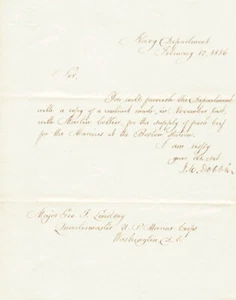 Navy Department
February 17, 1836
Sir,
You will furnish the Department
with a copy of a contract made, in November last,
with Martin for the supply of fresh beef
for the Marines at the Boston Station.
I am resply
your obt svt
Major Geo F. Lindsay
Quartermaster U. S. Marine Corps
Washington D. C.